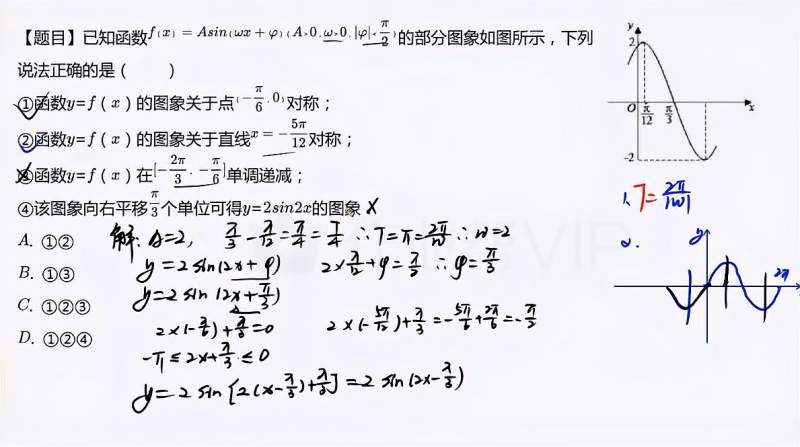 【题目】已知函数f(x)=Asin(ωx+φ)(A>0,ω>0,|φ|<π/2)的部分图象如图所示，下列
说法正确的是（ ）
①函数y=f（x）的图象关于点(-π/6,0)对称；
②函数y=f（x）的图象关于直线x=-5π/12对称；
③函数y=f（x）在[-2π/3,-π/6]单调递减；
④该图象向右平移π/3个单位可得y=2sin2x的图象 X
A. ①②
B. ①③
C. ①②③
D. ①②④
解: A=2, π/3-π/12=π/4=T/4 ∴T=π=2π/ω ∴ω=2
y=2sin(2x+φ) 2×π/12+φ=π/2 ∴φ=π/3
y=2sin(2x+π/3)
2×(-π/6)+π/3=0 2×(-5π/12)+π/3=-5π/6+2π/6=-π/2
-π≤2x+π/3≤0
y=2sin[2(x-π/3)+π/3]=2sin(2x-π/3)
y
2
O π/12 π/3 x
-2
1. T=2π/|W|
2.
y
2π x